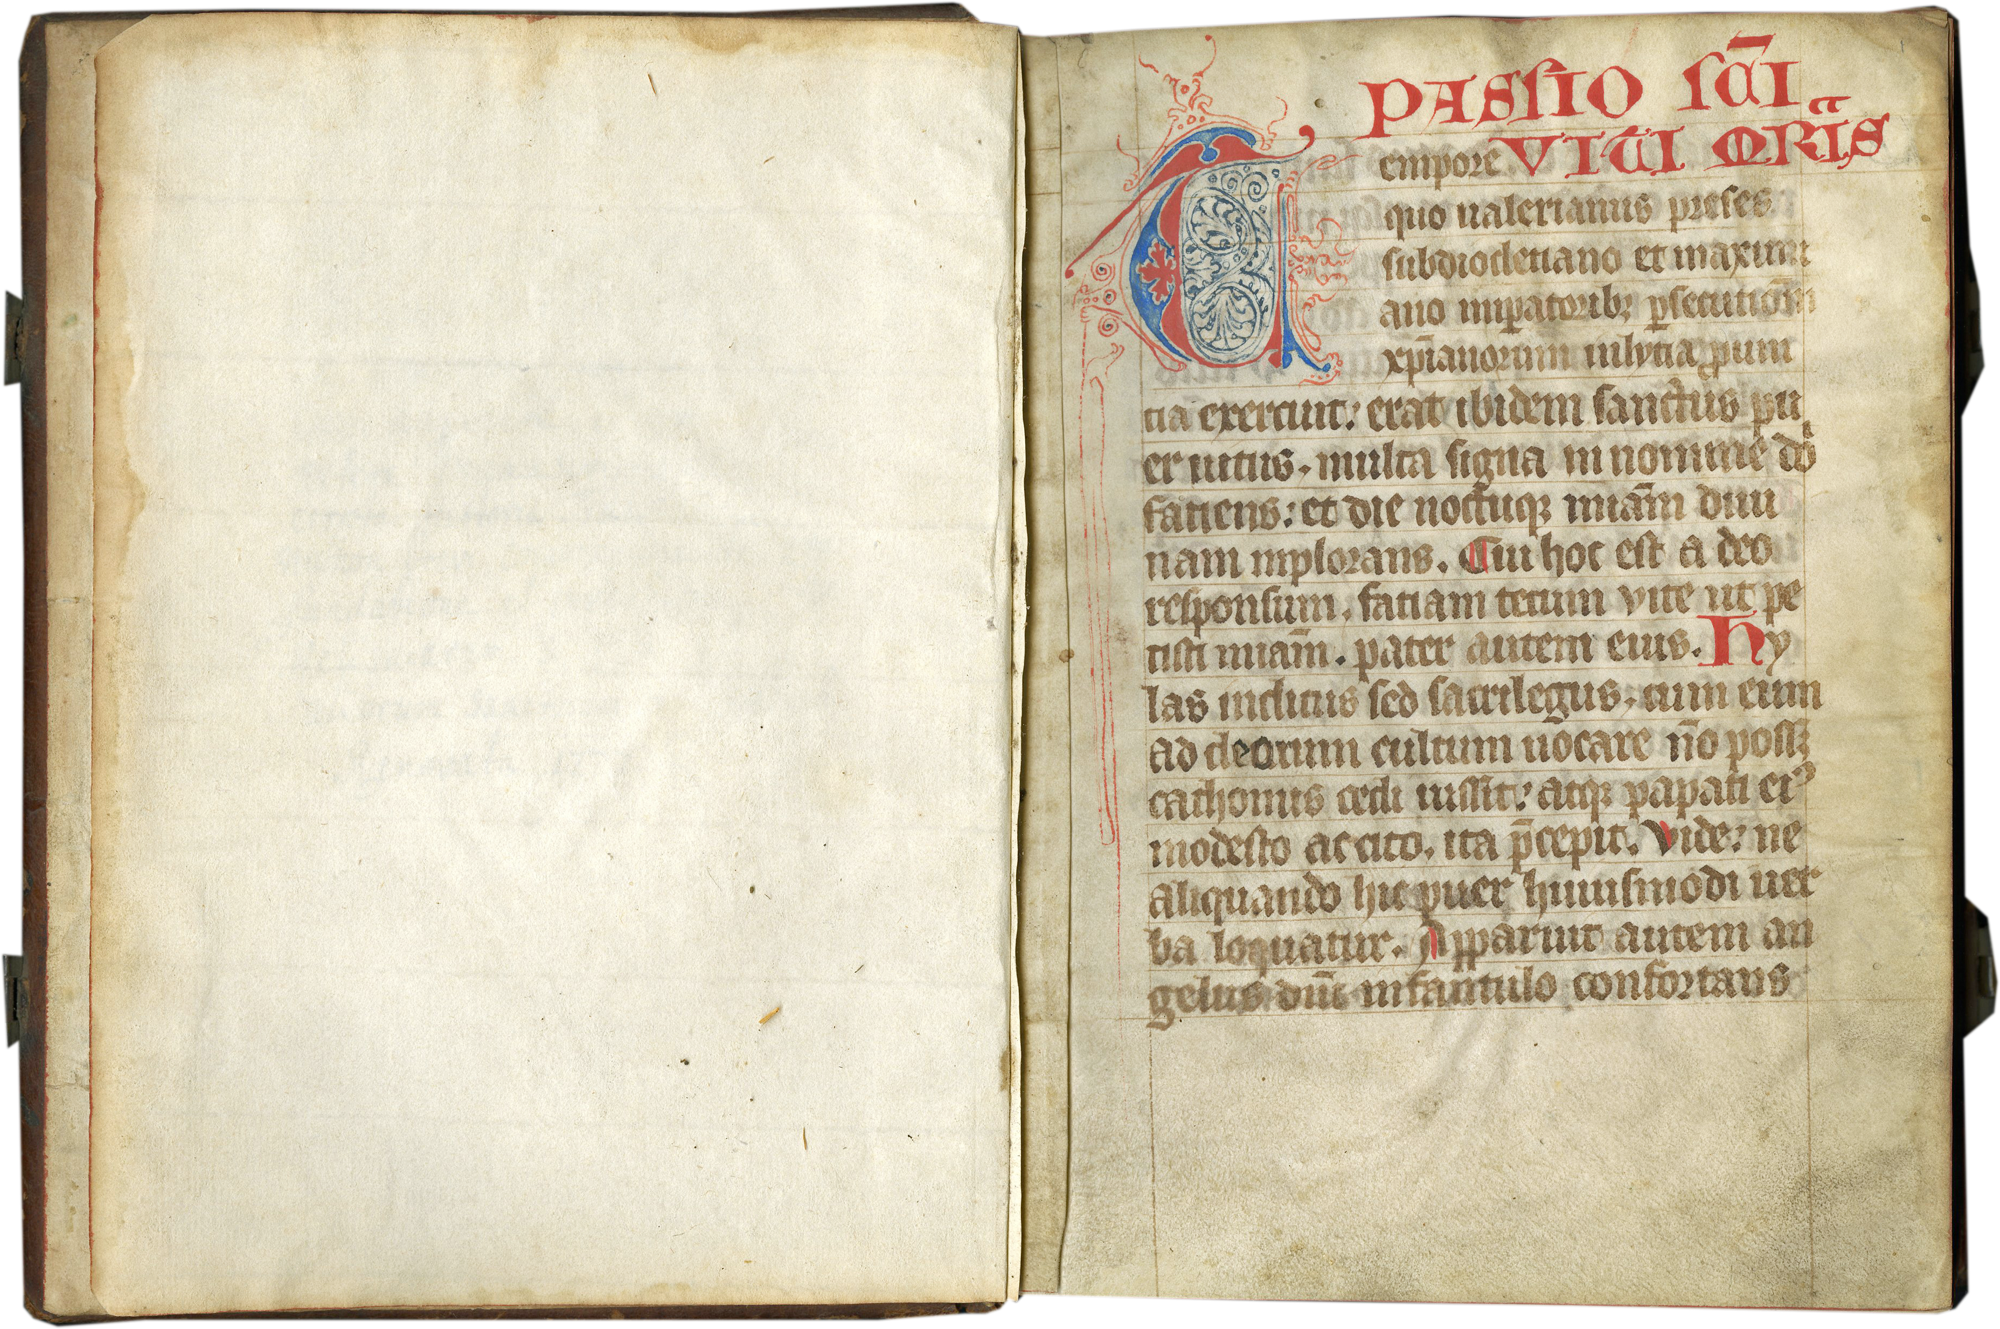 PASSIO SC̄I
VITI MR̄IS
Tempore
quo ualerianus preses
subdiocletiano et maximi
ano imperatoribꝫ ꝑsecutionē
xp̄ianorum inlycia ꝓuin
cia exercuit: erat ibidem sanctus pu
er uitus. multa signa in nomine dō
faciens: et die noctuqꝫ miām diui
nam inplorans. Cui hoc est a deo
responsum. faciam tecum vite ut pe
tisti miām. pater autem eius. Hy
las inclitus sed sacrilegus. cum eum
ad deorum cultum uocare n̄o possꝫ
cathomis cedi iussit: atqꝫ papati eiꝰ
modesto accito. ita p̄cepit. Vide: ne
aliquando hic puer huiusmodi uer
ba loquatur. Apparuit autem an
gelus dn̄i infantulo confortans